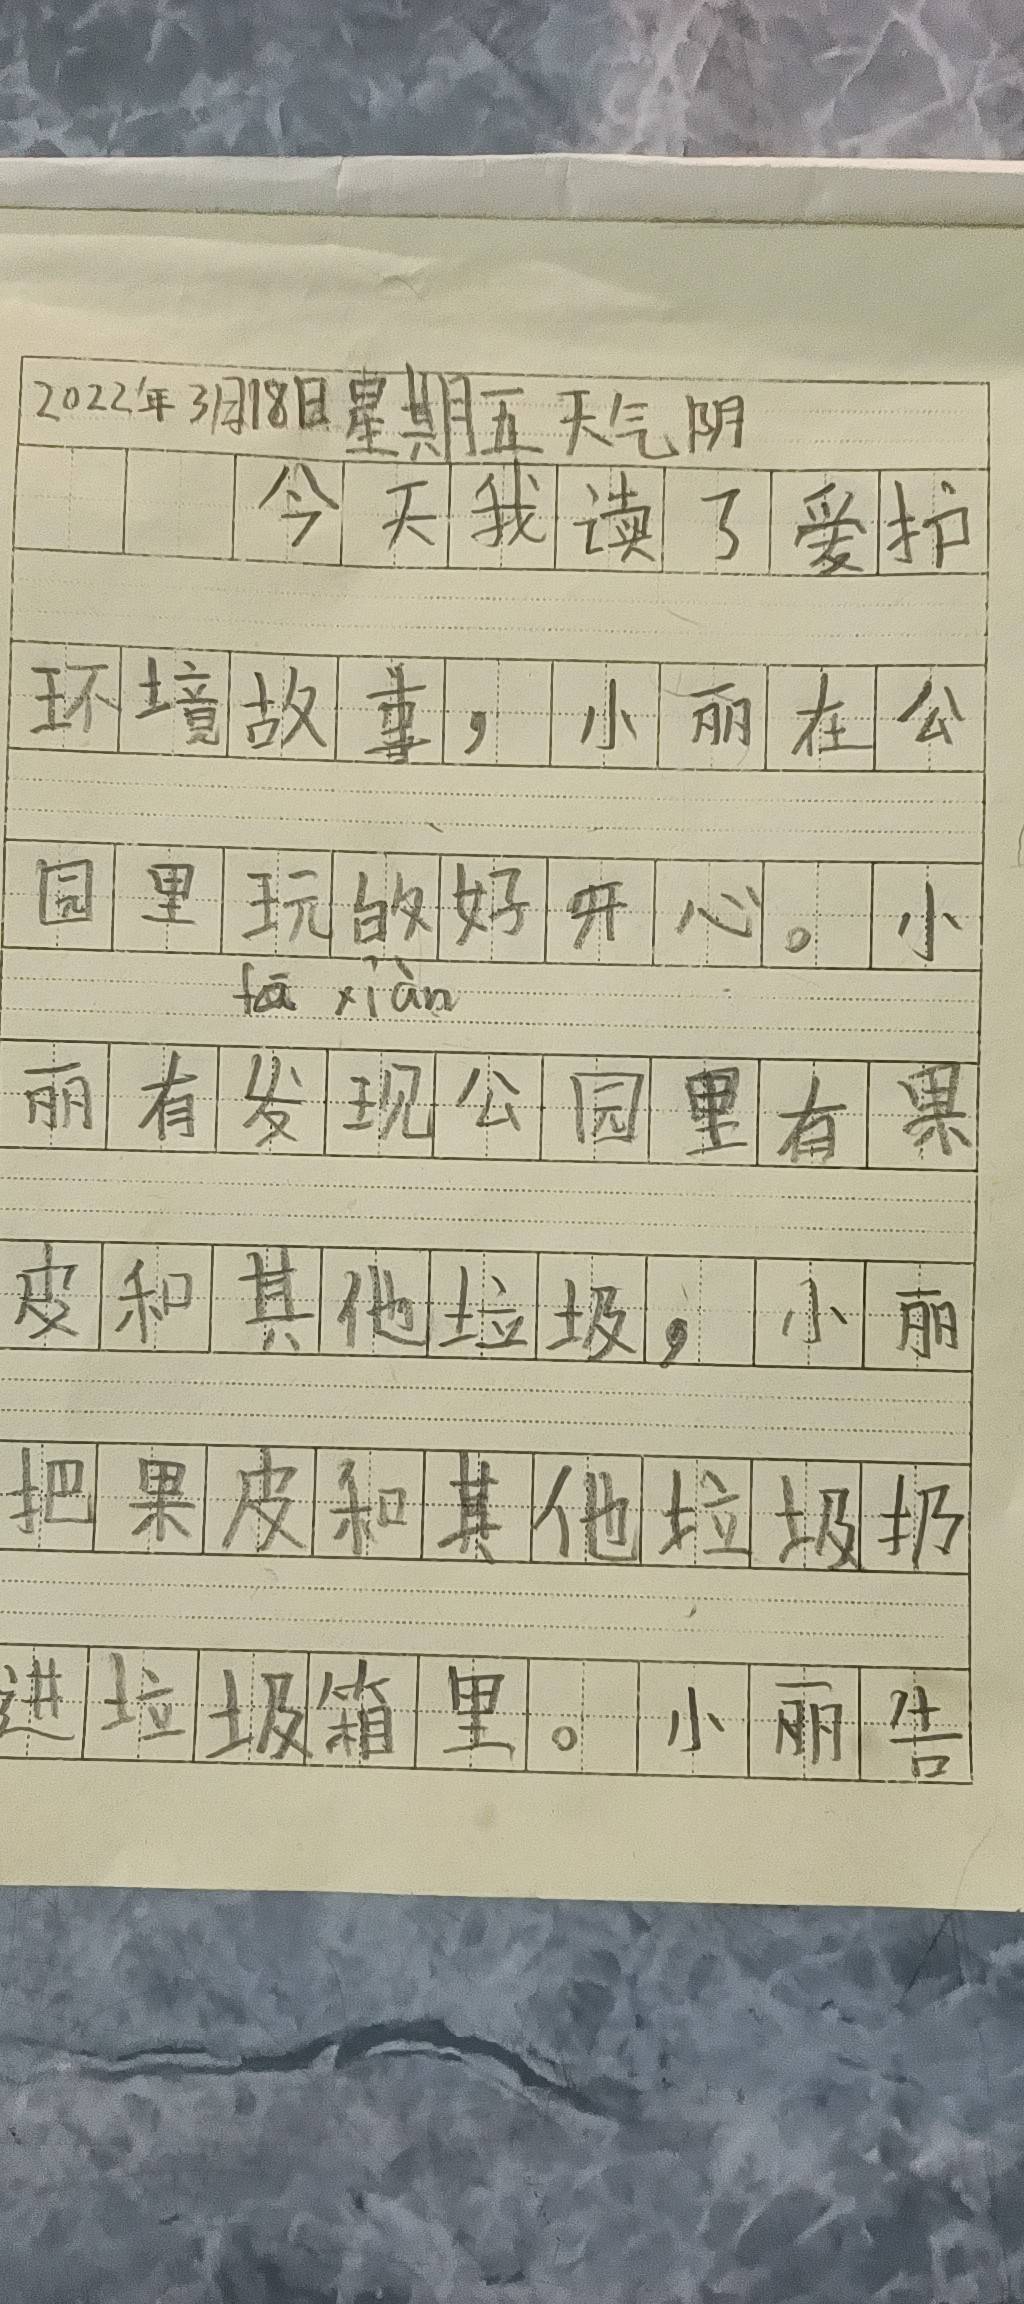 2022年3月18日星期五天气阴
今天我读了爱护
环境故事，小丽在公
园里玩的好开心。小
fā xiàn
丽有发现公园里有果
皮和其他垃圾，小丽
把果皮和其他垃圾扔
进垃圾箱里。小丽告